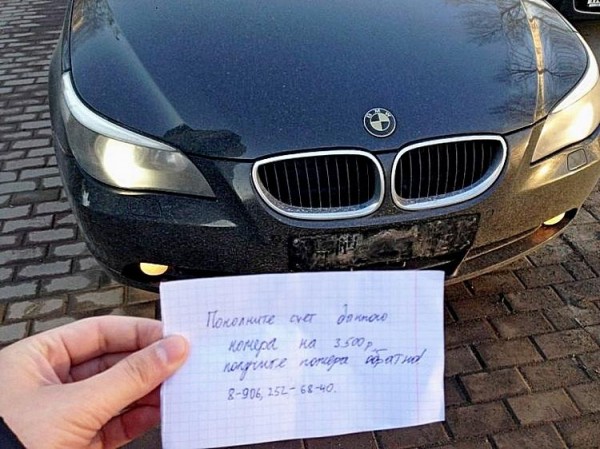 BMW
Пополните счет данного
номера на 3.500р
получите номера обратно!
8-906, 252-68-40.